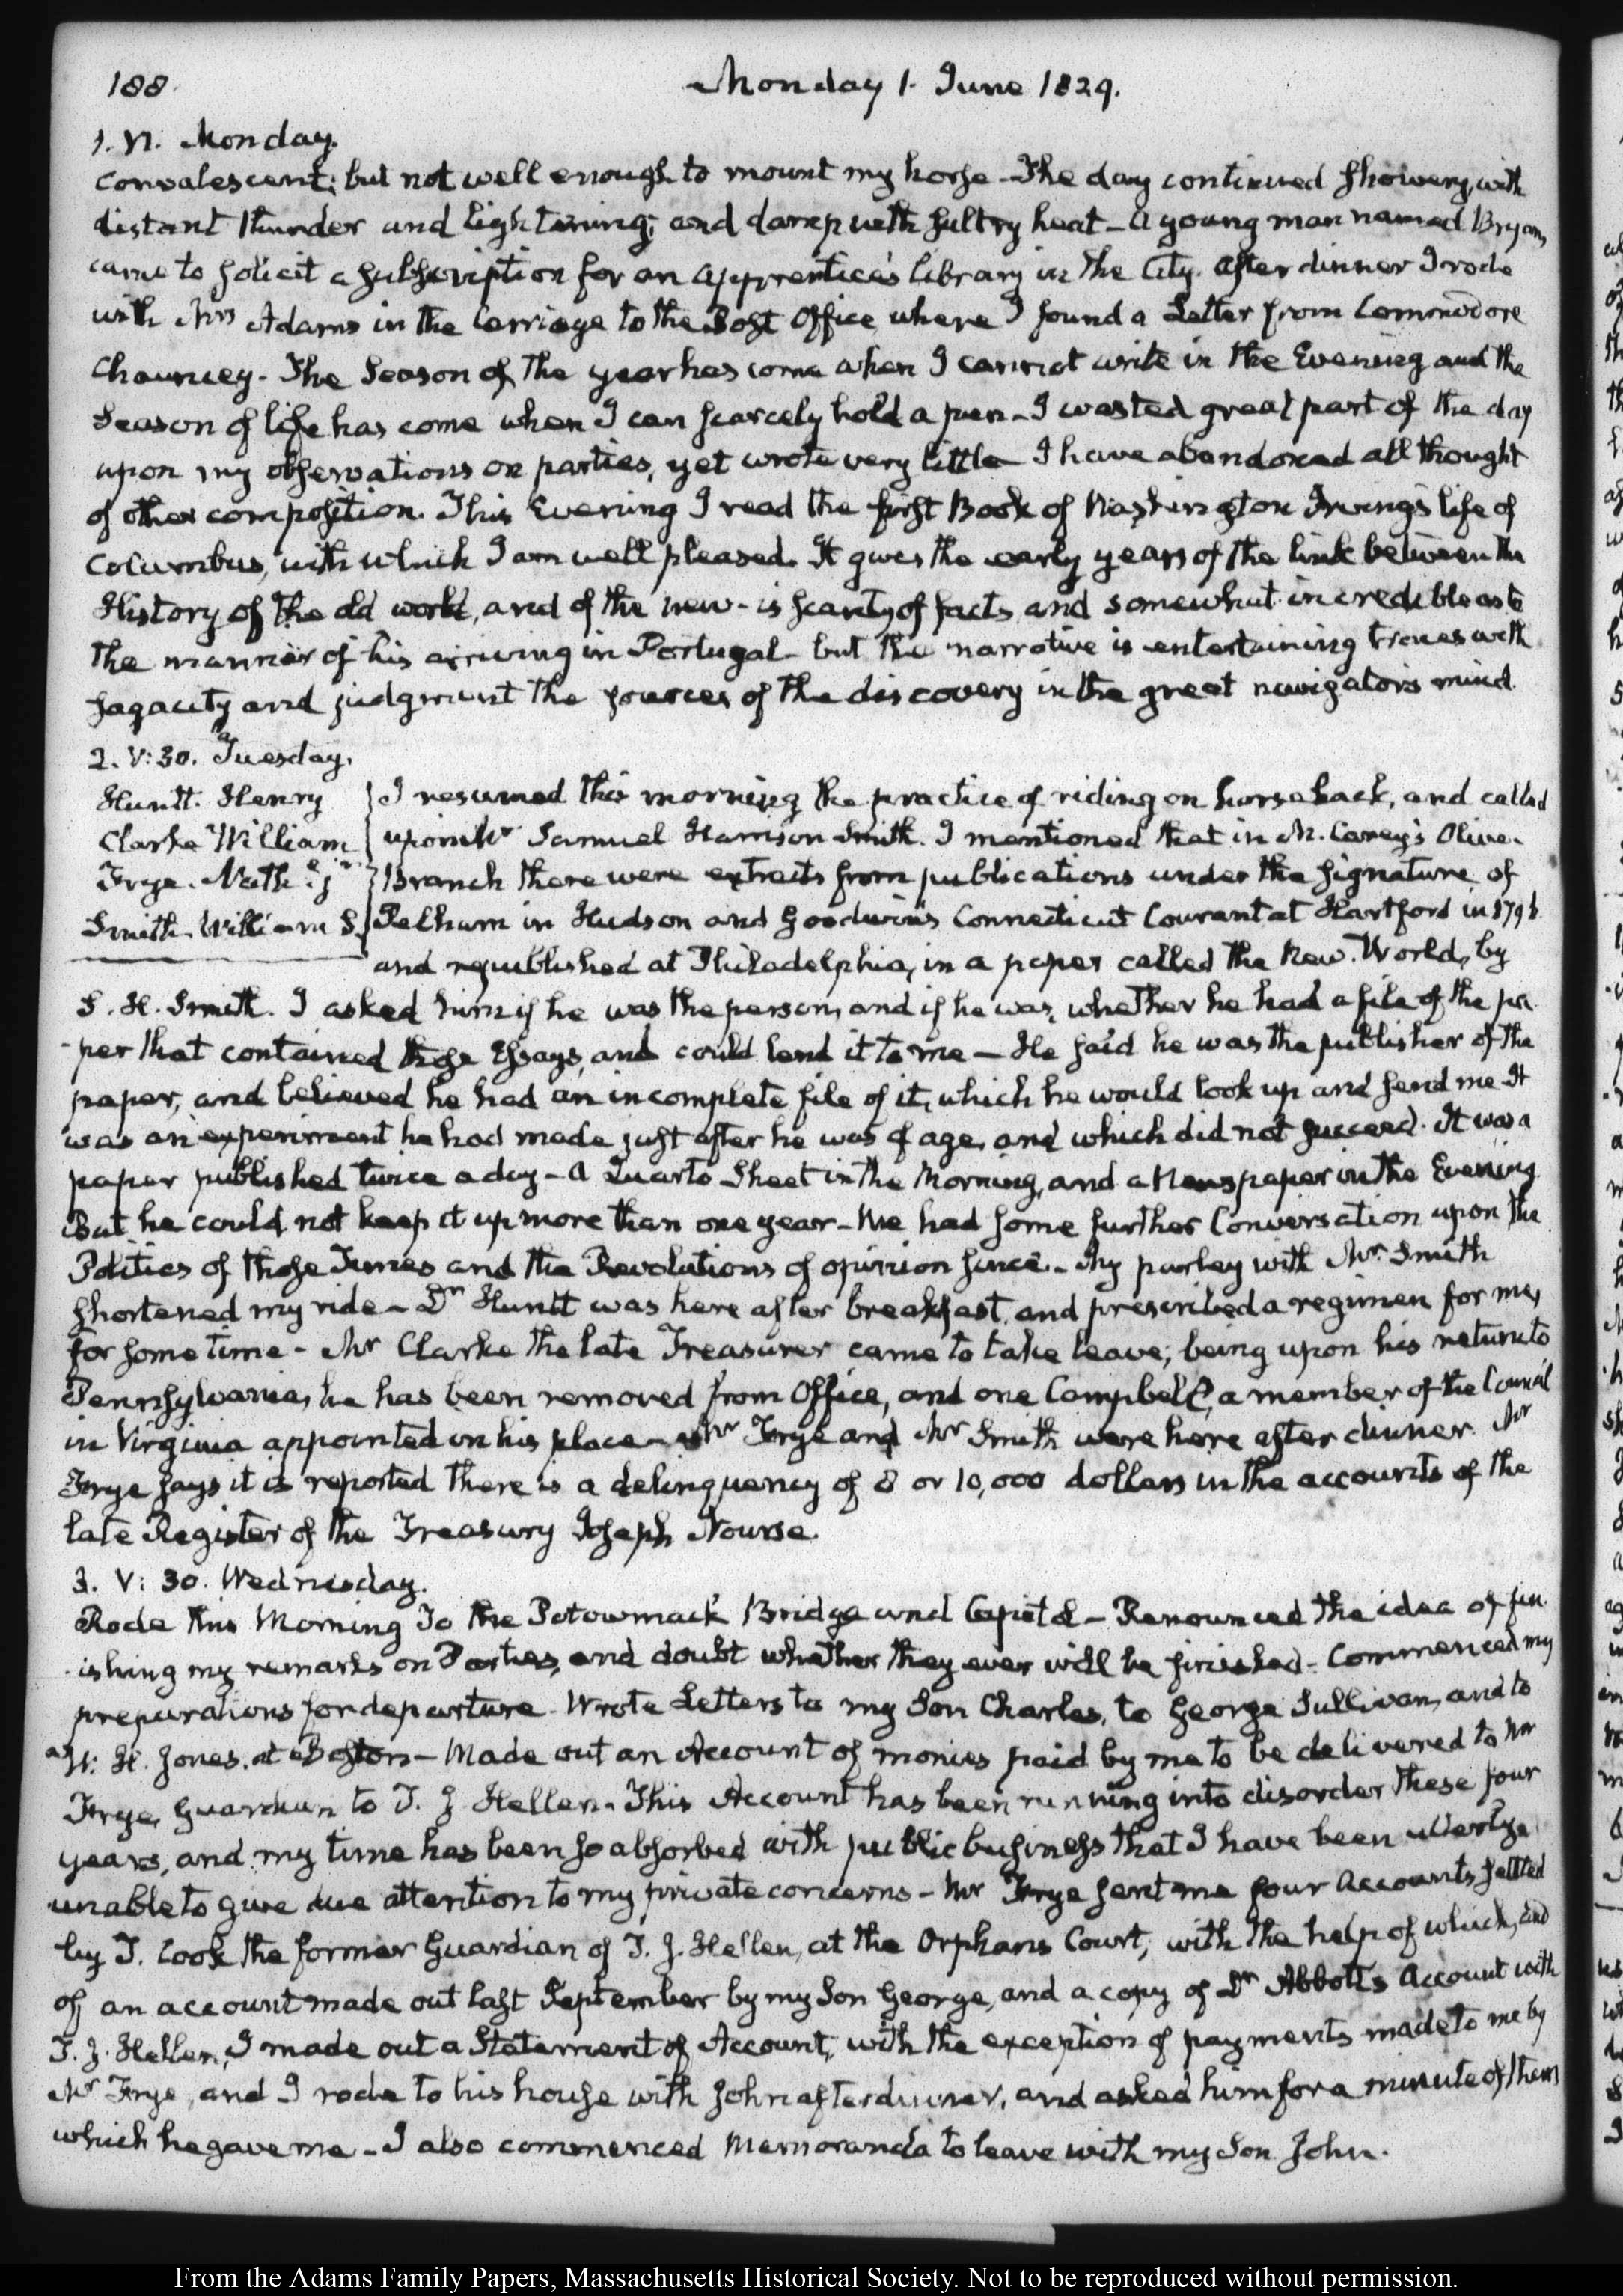 188
Monday 1. June 1829.
1. VI. Monday.
Convalescent; but not well enough to mount my horse - The day continued showery, with
distant thunder and lightening; and damp with sultry heat - A young man named Bryan,
came to solicit a subscription for an apprentice's library in the City. After dinner I rode
with Mrs Adams in the Carriage to the Post Office where I found a Letter from Commodore
Chauncey - The Season of the year has come when I cannot write in the Evening and the
Season of life has come when I can scarcely hold a pen - I wasted great part of the day
upon my observations on parties, yet wrote very little - I have abandoned all thought
of other composition. This Evening I read the first Book of Washington Irving's life of
Columbus, with which I am well pleased. It gives the early years of the link between the
History of the old world, and of the new - is scanty of facts, and somewhat incredible as to
the manner of his arriving in Portugal - but the narrative is entertaining traces with
sagacity and judgment the sources of the discovery in the great navigator's mind.
2. V:30. Tuesday.
Huntt. Henry
Clarke William
Frye. Nathl jr
Smith. William S.
I resumed this morning the practice of riding on horseback, and called
upon Mr Samuel Harrison Smith. I mentioned that in M. Carey's Olive-
Branch there were extracts from publications under the signature of
Pelham in Hudson and Goodwin's Connecticut Courant at Hartford in 1796
and republished at Philadelphia, in a paper called the New. World, by
S. H. Smith. I asked him if he was the person, and if he was, whether he had a file of the pa-
-per that contained those Essays, and could lend it to me - He said he was the publisher of the
paper, and believed he had an incomplete file of it, which he would look up and send me - It
was an experiment he had made just after he was of age, and which did not succeed. It was a
paper published twice a day - A Quarto Sheet in the Morning, and a Newspaper in the Evening
But he could not keep it up more than one year - We had some further Conversation upon the
Politics of those Times and the Revolutions of opinion since - My parley with Mr Smith
shortened my ride - Dr Huntt was here after breakfast, and prescribed a regimen for me,
for some time - Mr Clarke the late Treasurer came to take leave; being upon his return to
Pennsylvania, he has been removed from Office, and one Campbell, a member of the Council
in Virginia appointed in his place - Mr Frye and Mr Smith were here after dinner. Mr
Frye says it is reported there is a delinquency of 8 or 10,000 dollars in the accounts of the
late Register of the Treasury Joseph Nourse.
3. V:30. Wednesday.
Rode this Morning to the Potowmack Bridge and Capitol - Renounced the idea of fin-
-ishing my remarks on Parties, and doubt whether they ever will be finished - Commenced my
preparations for departure. Wrote Letters to my Son Charles, to George Sullivan, and to
W. H. Jones. at Boston - Made out an Account of monies paid by me to be delivered to Mr
Frye, Guardian to T. J. Hellen. This Account has been running into disorder these four
years, and my time has been so absorbed with public business that I have been utterly
unable to give due attention to my private concerns - Mr Frye sent me four Accounts settled
by T. Cook the former Guardian of T. J. Hellen, at the Orphans Court, with the help of which, and
of an account made out last September by my Son George, and a copy of Dr Abbot's Account with
T. J. Hellen, I made out a Statement of Account, with the exception of payments made to me by
Mr Frye, and I rode to his house with John after dinner, and asked him for a minute of them
which he gave me - I also commenced Memoranda to leave with my Son John.
From the Adams Family Papers, Massachusetts Historical Society. Not to be reproduced without permission.